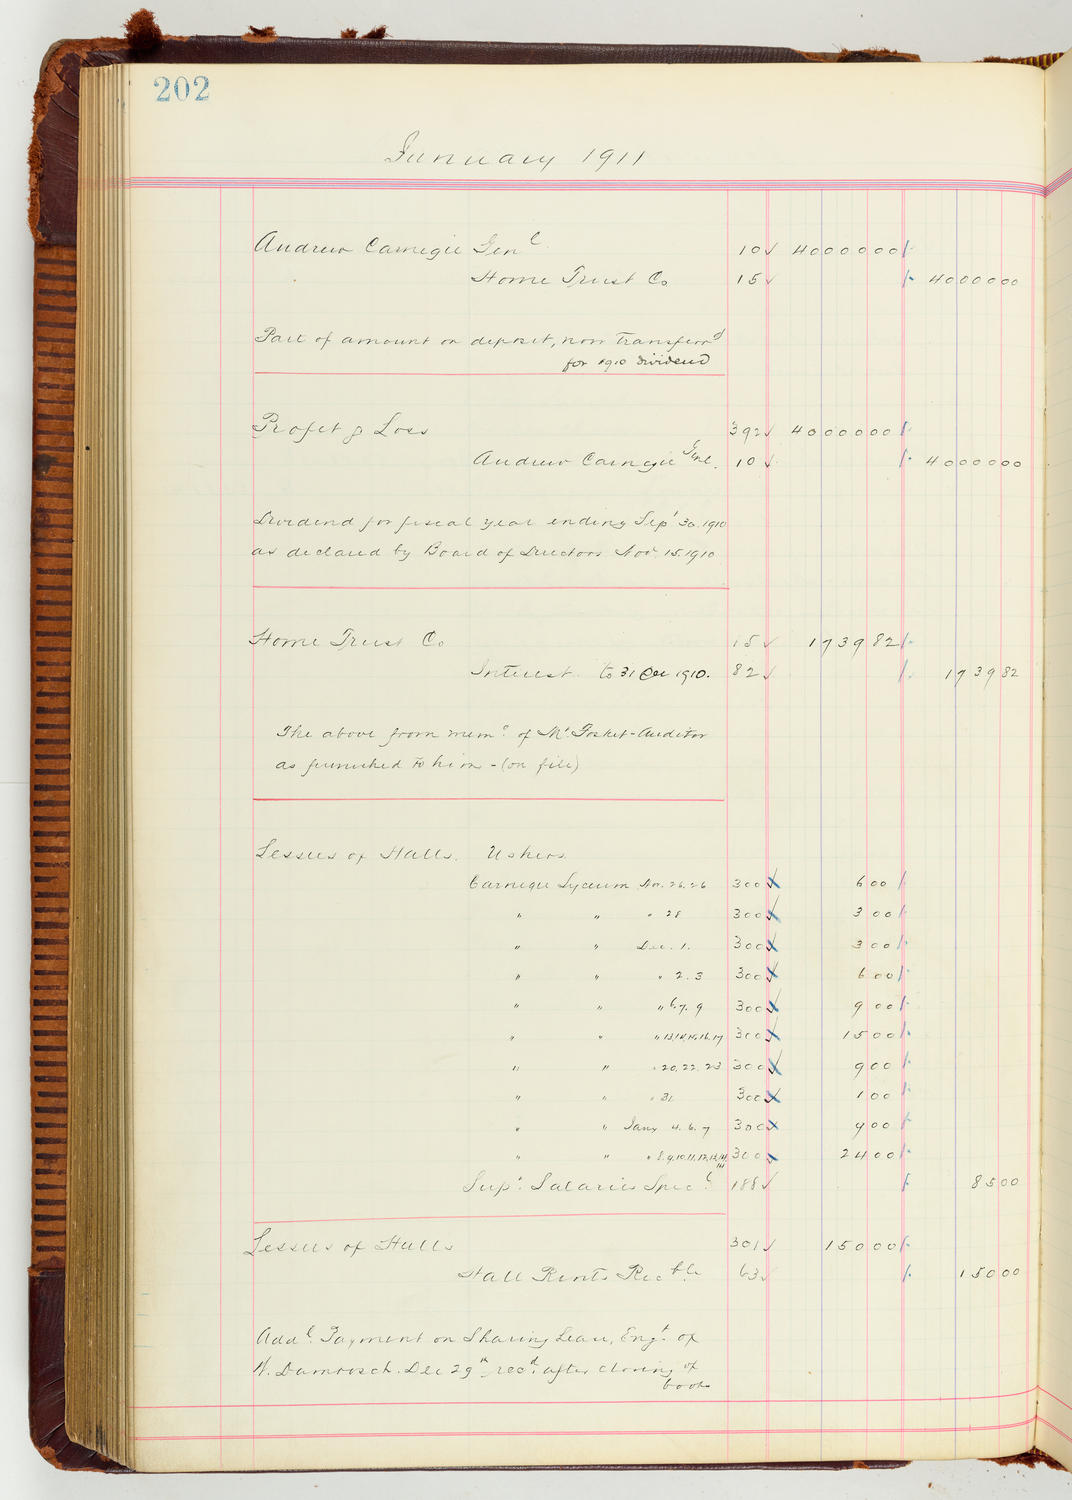 202
January 1911
Andrew Carnegie Genl 10 ✓ 40000 00
Home Trust Co 15 ✓ 40000 00
Part of amount on deposit, now transferrd
for 1910 dividend
Profit & Loss 392 ✓ 40000 00
Andrew Carnegie Genl. 10 ✓ 40000 00
Dividend for fiscal year ending Sept 30. 1910
as declared by Board of Directors Nov. 15. 1910
Home Trust Co 15 ✓ 1739 82
Interest to 31 Dec 1910. 82 ✓ 1739 82
The above from memo of Mr. - Auditor
as furnished to him - (on file)
Lessees of Halls. Ushers.
Carnegie Lyceum Nov. 26. 26 300 ✓ 6 00
" " " 28 300 ✓ 3 00
" " Dec. 1. 300 ✓ 3 00
" " " 2. 3 300 ✓ 6 00
" " " 6. 7. 9 300 ✓ 9 00
" " " 13, 14, 15, 16, 17 300 ✓ 15 00
" " " 20, 22, 23 300 ✓ 9 00
" " " 31 300 ✓ 1 00
" " Jany 4. 6. 7 300 ✓ 9 00
" " " 8, 9, 10, 11, 12, 13, 14, 300 ✓ 24 00
Sup. Salaries Specl. 188 ✓ 85 00
Lessees of Halls 301 ✓ 150 00
Hall Rents Recble 63 ✓ 150 00
Addl. Payment on Sharing Lease, Engt. of
W. Damrosch. Dec 29th, recd. after closing of
books